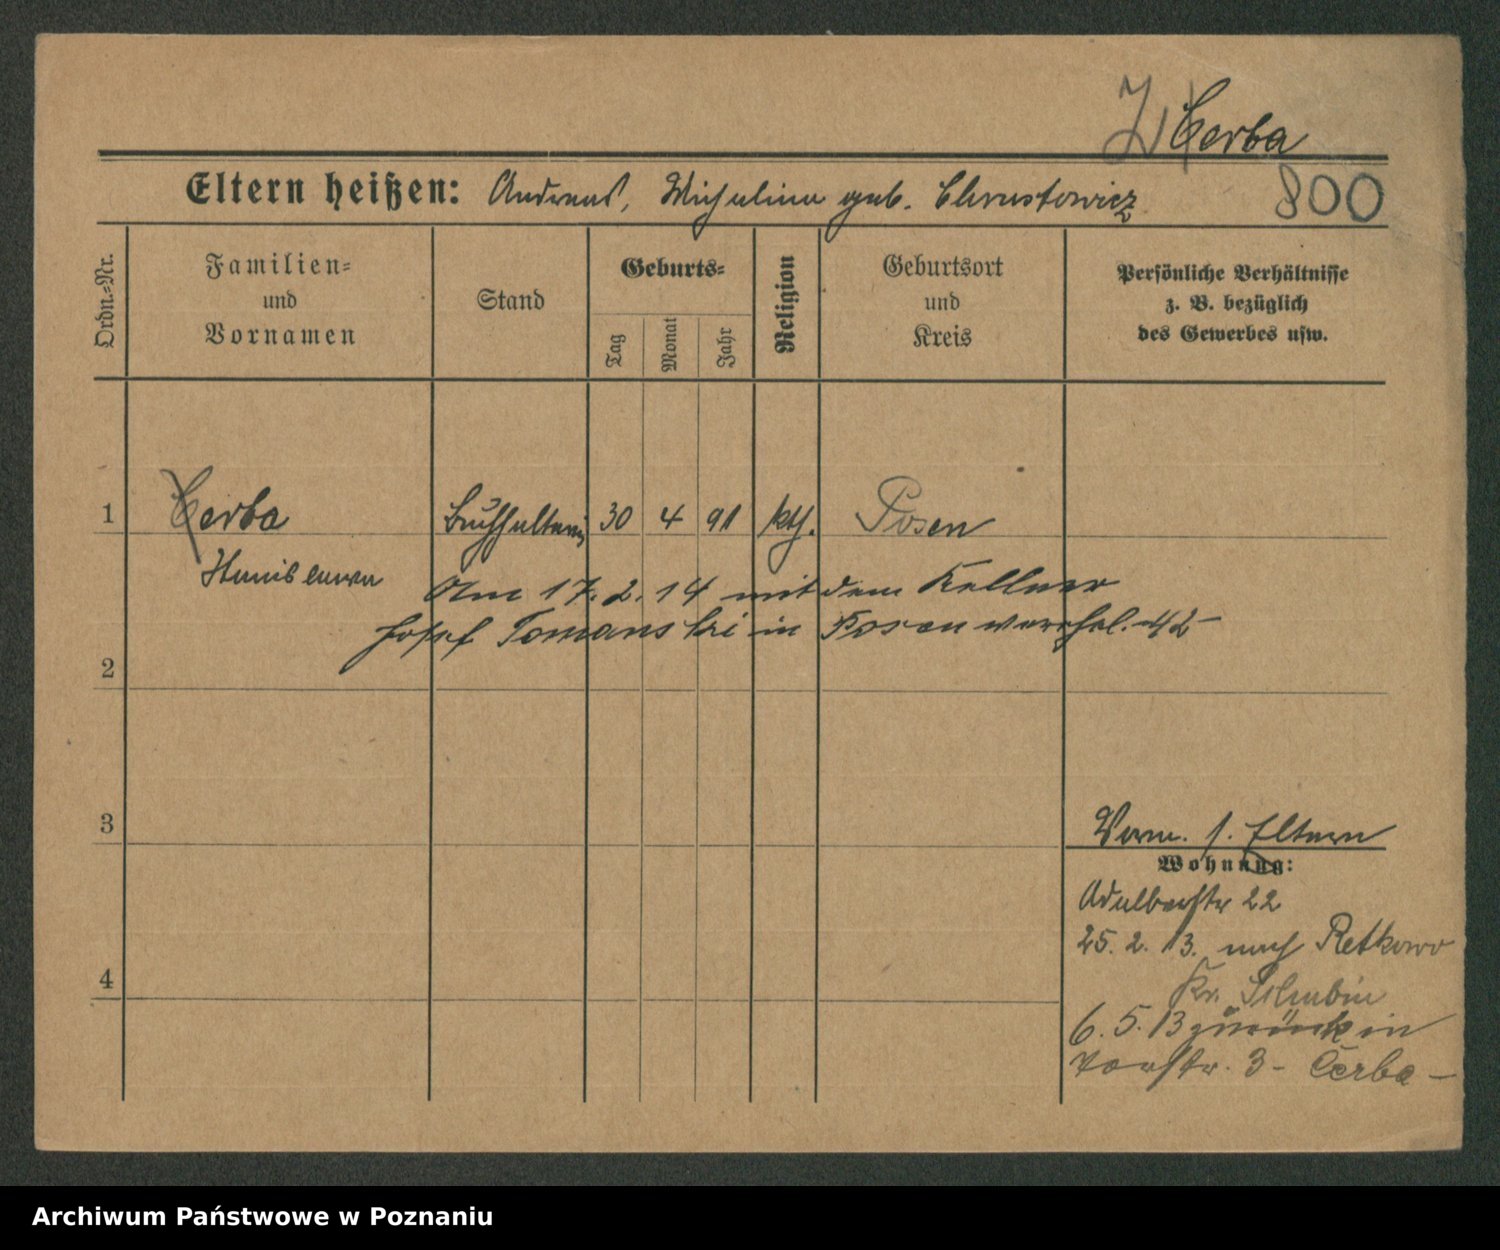 Z Cerba
Eltern heißen: Andreas, Michalina geb. Chrustowicz
800
Ordn.-Nr.
Familien-
und
Vornamen
Stand
Geburts-
Tag
Monat
Jahr
Religion
Geburtsort
und
Kreis
Persönliche Verhältnisse
z. B. bezüglich
des Gewerbes usw.
1 Cerba Buchhalterin 30 4 91 kth. Posen
Stanislawa
Am 17. 2. 14 mit dem Kellner
Josef Tomanski in Posen verehel. 42
2
3
4
Verm. s. Eltern
Wohnung:
Adalbertstr 22
25. 2. 13. nach Retkowo
Kr. Schubin
6. 5. 13 zurück in
Torstr. 3 - Cerba -
Archiwum Państwowe w Poznaniu